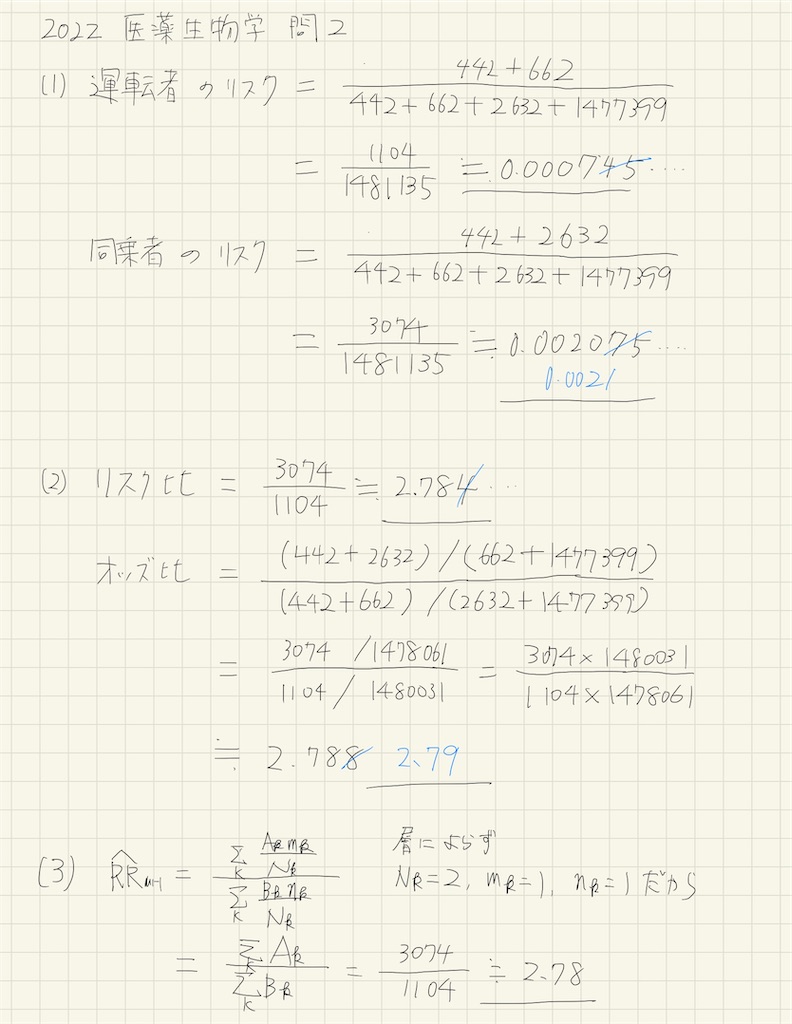 2022 医薬生物学 問2
(1) 運転者のリスク = (442+662)/(442+662+2632+1477399)
= 1104/1481135 ≒ 0.000745‥‥
同乗者のリスク = (442+2632)/(442+662+2632+1477399)
= 3074/1481135 ≒ 0.002075‥‥
0.0021
(2) リスク比 = 3074/1104 ≒ 2.784‥
オッズ比 = ((442+2632)/(662+1477399))/((442+662)/(2632+1477399))
= (3074/1478061)/(1104/1480031) = (3074×1480031)/(1104×1478061)
≒ 2.788 2.79
層によらず
(3) R̂R_MH = (Σ_k A_k m_k/N_k)/(Σ_k B_k n_k/N_k) N_k=2, m_k=1, n_k=1だから
= (Σ_k A_k)/(Σ_k B_k) = 3074/1104 ≒ 2.78